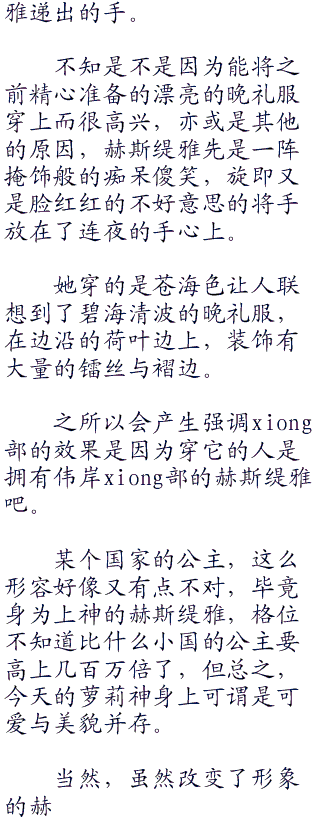 雅递出的手。
不知是不是因为能将之
前精心准备的漂亮的晚礼服
穿上而很高兴，亦或是其他
的原因，赫斯缇雅先是一阵
掩饰般的痴呆傻笑，旋即又
是脸红红的不好意思的将手
放在了连夜的手心上。
她穿的是苍海色让人联
想到了碧海清波的晚礼服，
在边沿的荷叶边上，装饰有
大量的镭丝与褶边。
之所以会产生强调xiong
部的效果是因为穿它的人是
拥有伟岸xiong部的赫斯缇雅
吧。
某个国家的公主，这么
形容好像又有点不对，毕竟
身为上神的赫斯缇雅，格位
不知道比什么小国的公主要
高上几百万倍了，但总之，
今天的萝莉神身上可谓是可
爱与美貌并存。
当然，虽然改变了形象
的赫